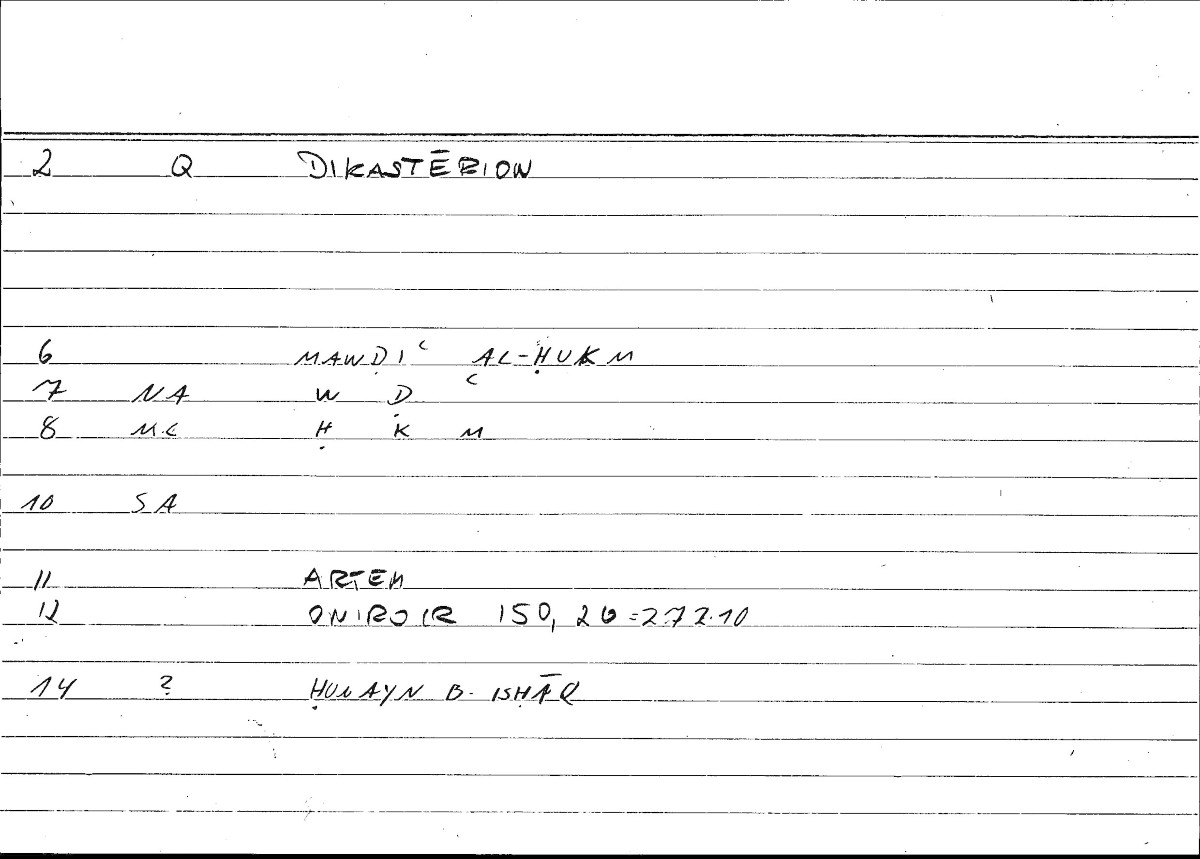 2 Q DIKASTĒRION
6 MAWḌIʿ AL-ḤUKM
7 NA W Ḍ ʿ
8 MC Ḥ K M
10 SA
11 ARTEM
12 ONIROCR 150, 20 = 272.10
14 ? ḤUNAYN B. ISḤĀQ